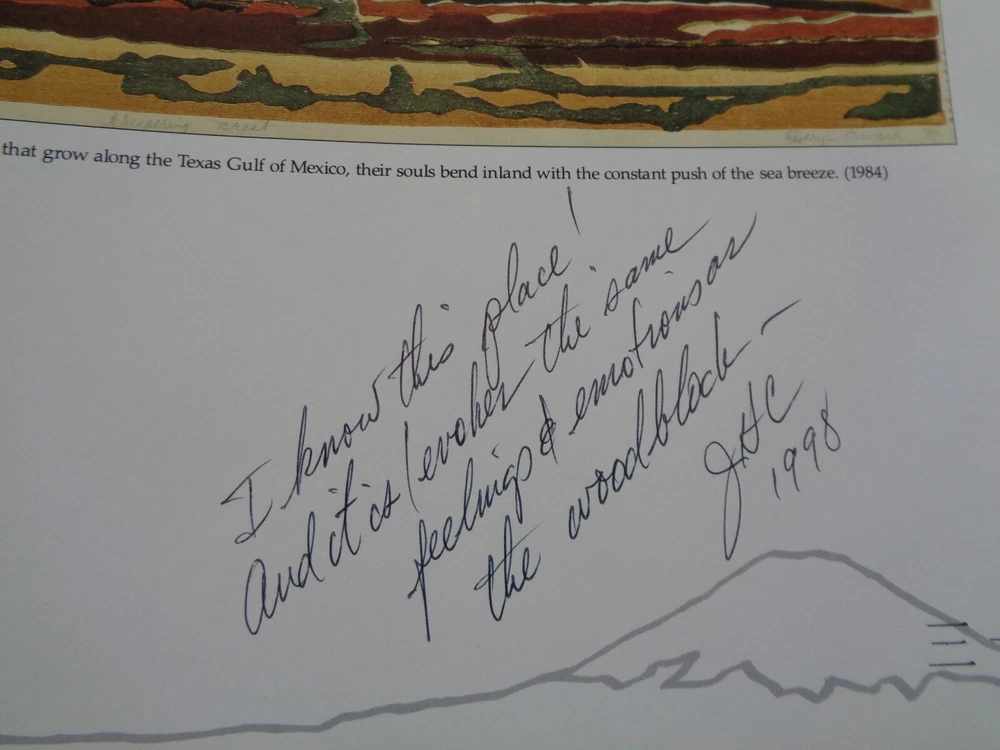 Whispering
that grow along the Texas Gulf of Mexico, their souls bend inland with the constant push of the sea breeze. (1984)
I know this place!
And it is / evokes the same
feelings & emotions as
the woodblock –
JHC
1998